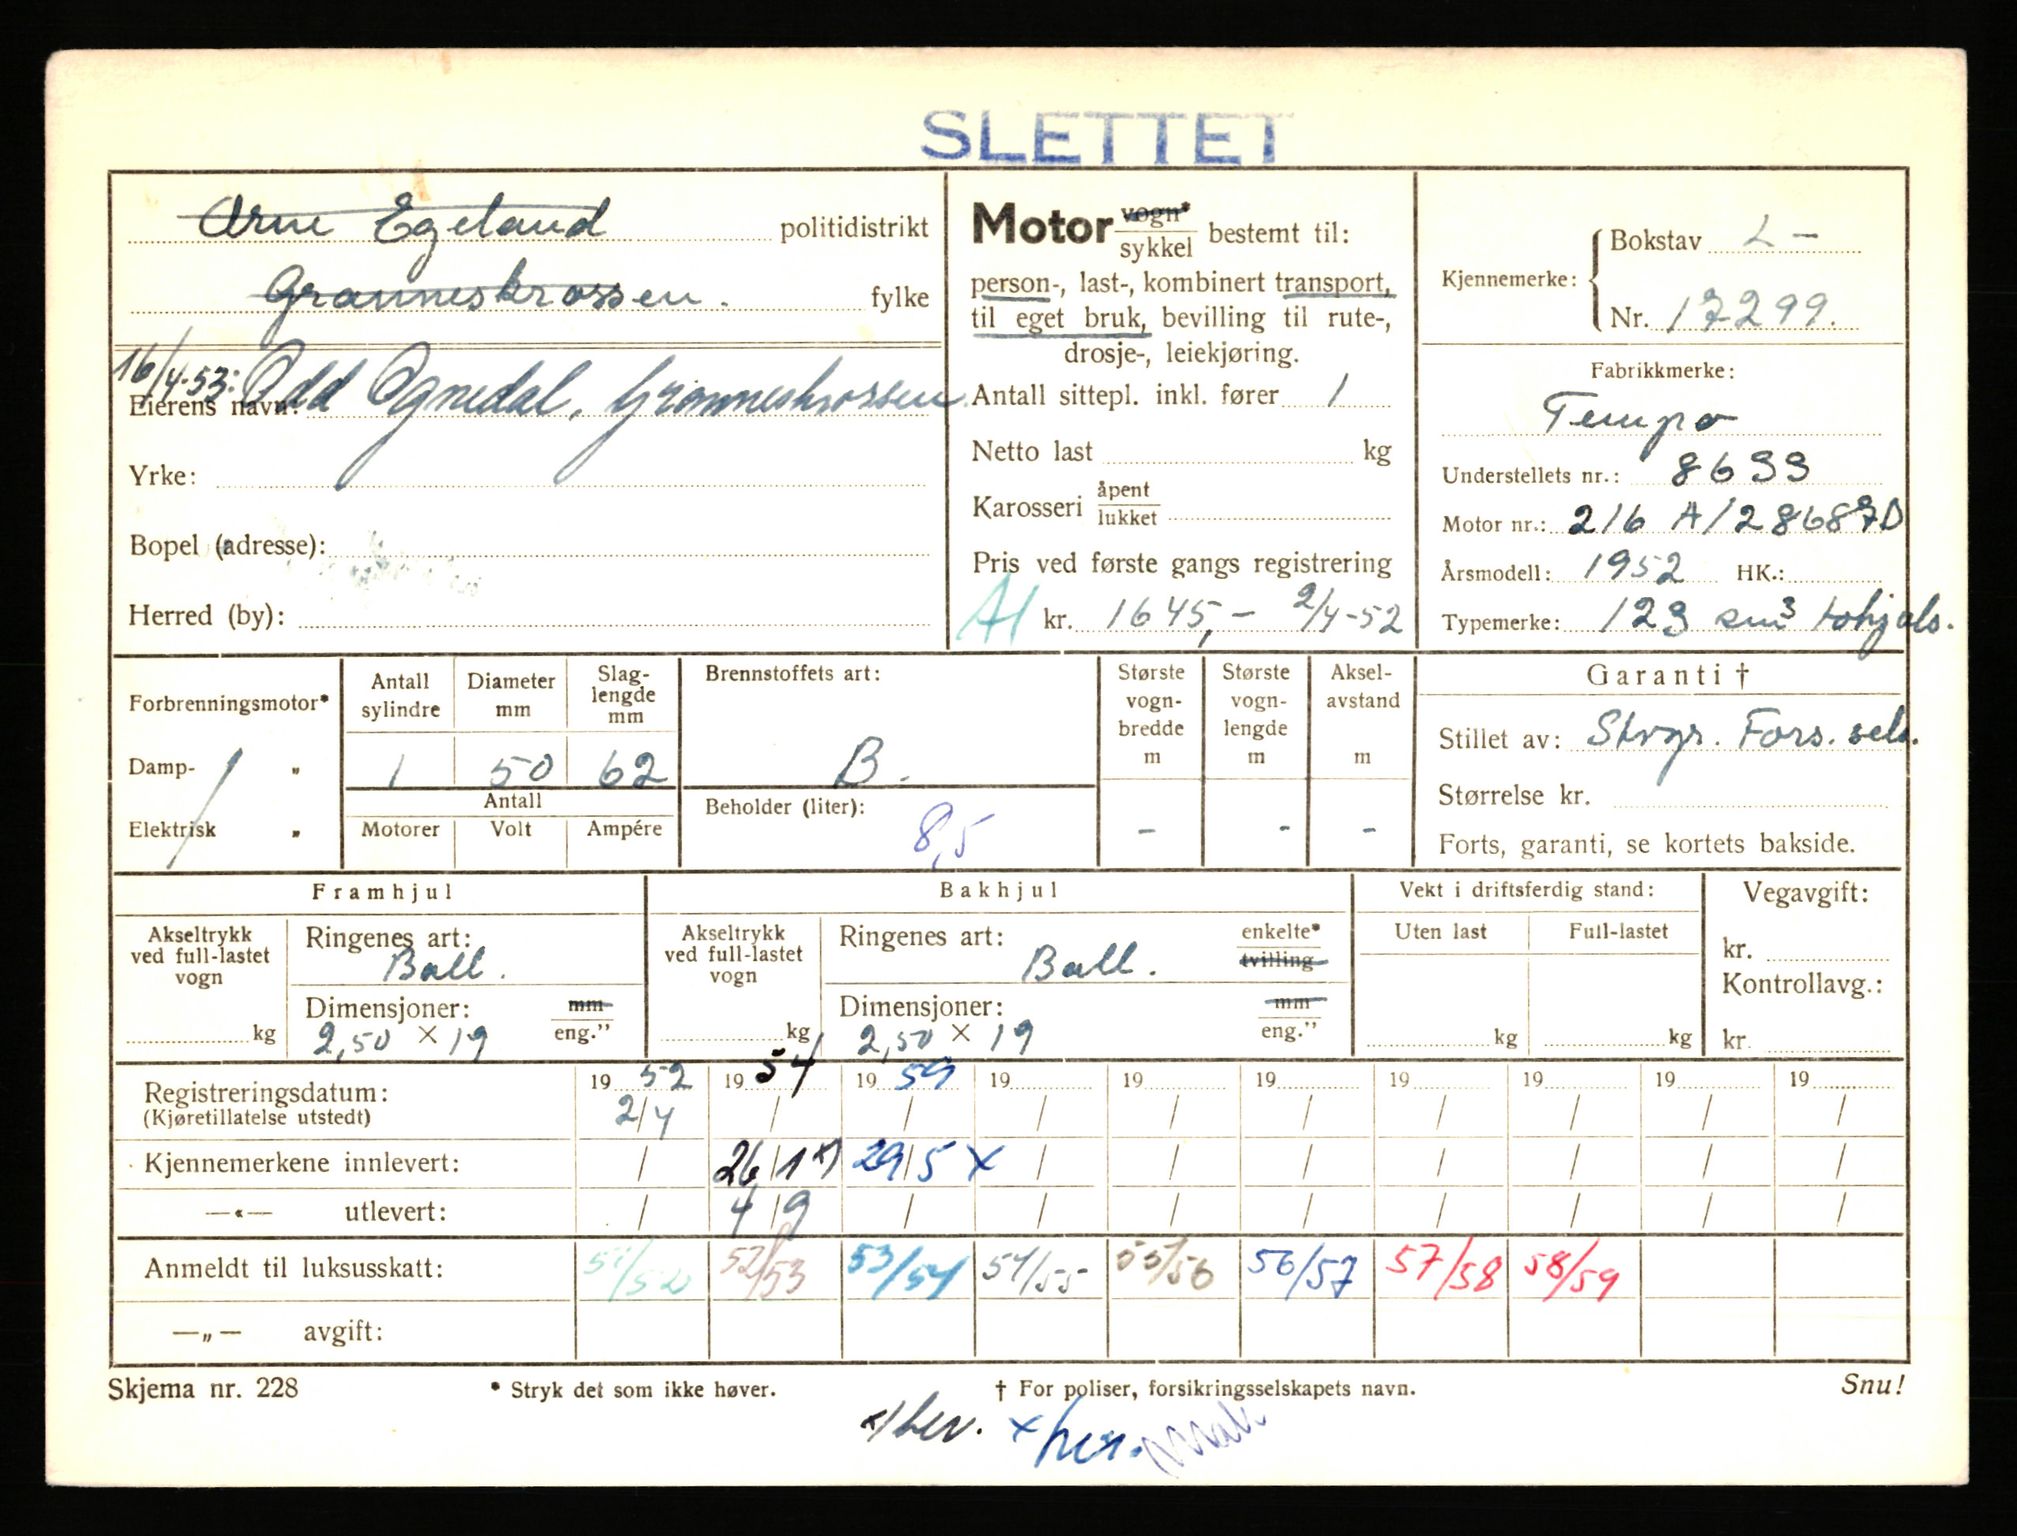 SLETTET
Arne Egeland politidistrikt
Granneskrossen. fylke
16/4-53: Odd Ognedal, Granneskrossen
Eierens navn:
Yrke:
Bopel (adresse):
Herred (by):
Motor vogn* sykkel bestemt til:
person-, last-, kombinert transport,
til eget bruk, bevilling til rute-,
drosje-, leiekjøring.
Antall sittepl. inkl. fører 1
Netto last kg
Karosseri åpent lukket
Pris ved første gangs registrering
A1 kr. 1645,- 2/4-52
Kjennemerke: Bokstav L-
Nr. 17299.
Fabrikkmerke:
Tempo
Understellets nr.: 8633
Motor nr.: 216 A/286878D
Årsmodell: 1952 HK.:
Typemerke: 123 cm³ tohjuls.
Forbrenningsmotor*
Damp- „
Elektrisk „
Antall sylindre Diameter mm Slag-lengde mm
1 50 62
Antall
Motorer Volt Ampére
Brennstoffets art:
B.
Beholder (liter):
8,5
Største vogn-bredde m
Største vogn-lengde m
Aksel-avstand m
- - -
Garanti †
Stillet av: Stvgr. Fors. sels.
Størrelse kr.
Forts, garanti, se kortets bakside.
Framhjul
Akseltrykk ved full-lastet vogn
kg
Ringenes art:
Ball.
Dimensjoner: mm
2,50 × 19 eng."
Bakhjul
Akseltrykk ved full-lastet vogn
kg
Ringenes art: enkelte*
Ball. tvilling
Dimensjoner: mm
2,50 × 19 eng."
Vekt i driftsferdig stand:
Uten last Full-lastet
kg kg
Vegavgift:
kr.
Kontrollavg.:
kr.
Registreringsdatum: 19 52 19 54 19 59 19 19 19 19 19 19 19
(Kjøretillatelse utstedt) 2/4 / / / / / / / / /
Kjennemerkene innlevert: / 26/1 x) 29/5 x / / / / / / /
—«— utlevert: / 4/9 / / / / / / / /
Anmeldt til luksusskatt: 51/52 52/53 53/54 54/55 55/56 56/57 57/58 58/59
—„— avgift:
Skjema nr. 228 * Stryk det som ikke høver. † For poliser, forsikringsselskapets navn. Snu!